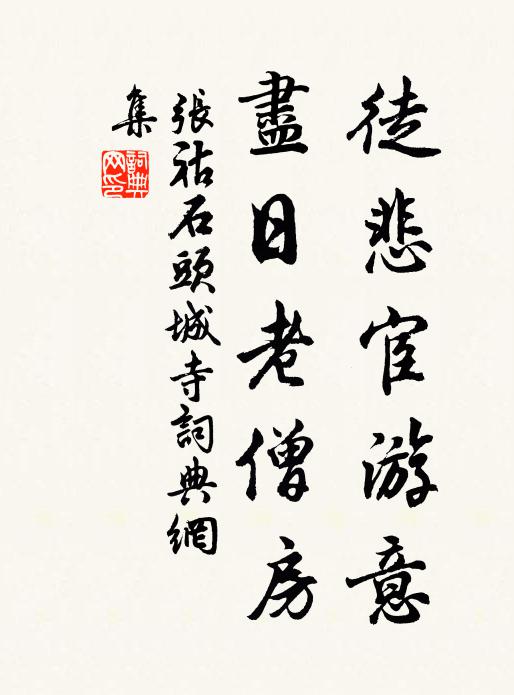 徒悲宦游意
盡日老僧房
張祜石頭城寺詞典網
集
詞典网印